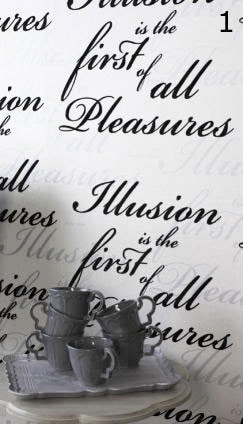 Illusion
1
ures
is the
first
of all
ion
the
Pleasures
all
ures
Illusion
is the
first
of all
Illusion
ion
the
ures